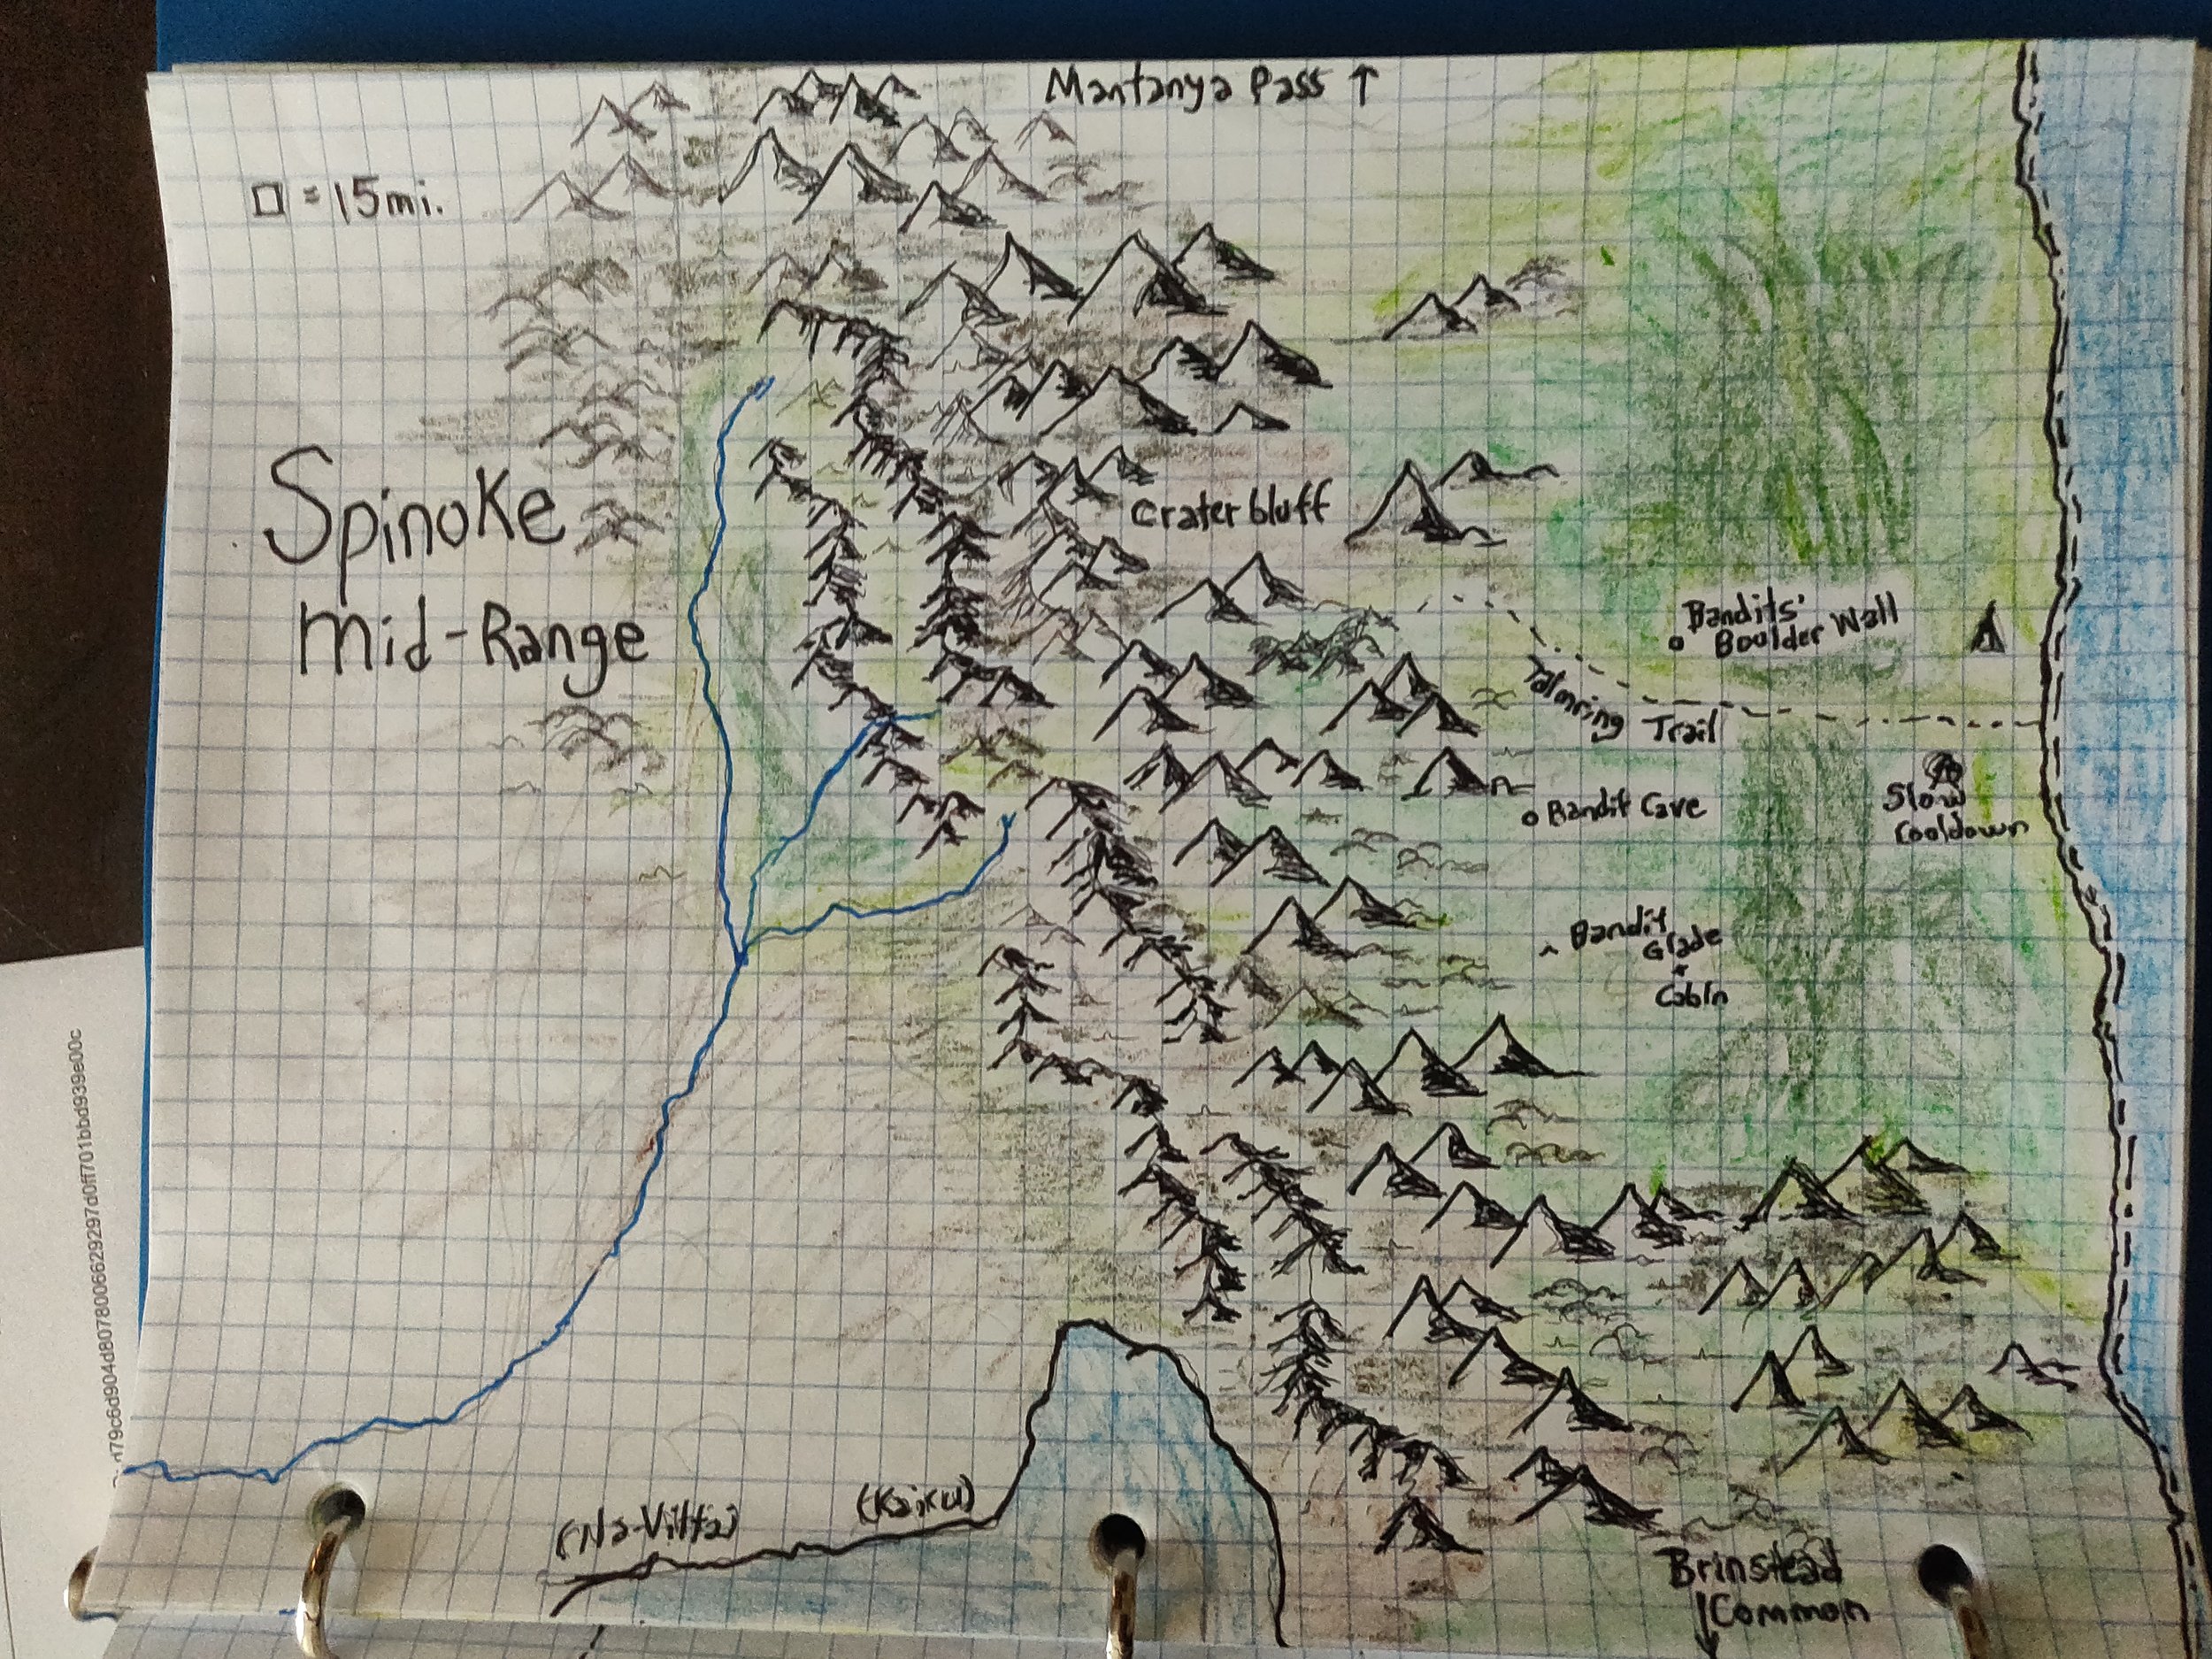 Mantanya Pass ↑
□ = 15mi.
Spinoke
Mid-Range
Craterbluff
Bandits'
Boulder Wall
Talmring
Trail
Slow
Cooldown
Bandit Cave
Bandit
Glade
Cabin
(Na-Viltai)
(Kaiku)
Brinstead
↓Common